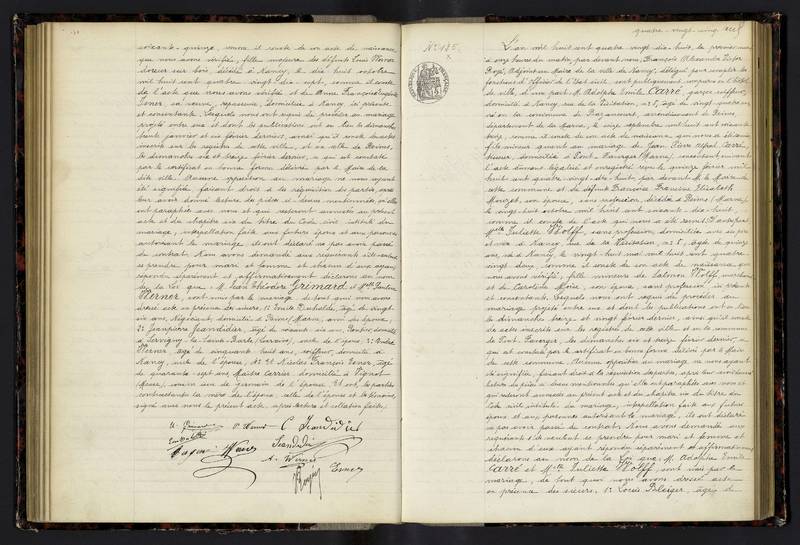 soixante-quinze, comme il conste de son acte de naissance
que nous avons vérifié, fille majeure des défunts Louis Werner
doreur sur bois, décédé à Nancy, le dix octobre
mil huit cent quatre vingt dix sept, comme il conste
de l'acte que nous avons vérifié et de Anne Françoise
sa veuve, repasseuse, domiciliée à Nancy, ici présente
et consentante. Lesquels nous ont requis de procéder au mariage
projeté entre eux et dont les publications ont eu lieu les dimanches
trente janvier et six février derniers, ainsi qu'il conste des actes
inscrits sur les registres de cette ville, et en celle de Reims,
les dimanches six et treize février dernier, ce qui est constaté
par le certificat en bonne forme délivré par le Maire de la
dite ville. Aucune opposition au mariage ne nous ayant
été signifiée, faisant droit à la réquisition des parties, après
leur avoir donné lecture des pièces ci-dessus mentionnées, qu'elles
ont paraphées avec nous et qui resteront annexées au présent
acte et du chapitre six du titre du Code civil intitulé du
mariage, interpellation faite aux futurs époux et aux personnes
autorisant le mariage, ils ont déclaré ne pas avoir passé
de contrat. Nous avons demandé aux requérants s'ils veulent
se prendre pour mari et femme et chacun d'eux ayant
répondu séparément et affirmativement déclarons au nom
de la Loi que M. Jean Théodore Grimard et Mlle Pauline
Werner sont unis par le mariage de tout quoi nous avons
dressé acte en présence des sieurs, 1° Emile âgé de vingt
six ans, Négociant, domicilié à Reims (Marne), ami des époux,
2° Jeanpierre Jeandidier, âgé de soixante six ans, domicilié
à Servigny-les-Sainte-Barbe (Lorraine), oncle de l'époux, 3° André
Werner, âgé de cinquante huit ans, coiffeur, domicilié à
Nancy, oncle de l'épouse, 4° Et Nicolas François âgé
de quarante sept ans, Maître Carrier, domicilié à Vignot
(Meuse), cousin issu de germain de l'épouse. Et ont, les parties
contractantes, la mère de l'épouse, celle de l'époux et les témoins,
signé avec nous le présent acte, après lecture et collation faite.
P. Werner C Jeandidier
Jeandidier
A. Werner
quatre-vingt-cinq
N° 185.
L'an mil huit cent quatre vingt dix-huit, le premier mars
à onze heures du matin, par devant nous, François Alexandre Victor
Adjoint au Maire de la ville de Nancy, délégué pour remplir les
fonctions d'officier de l'Etat civil, sont publiquement comparus en l'hôtel
de ville, d'une part M. Adolphe Emile Carré, garçon coiffeur,
domicilié à Nancy, rue de la Visitation, n° 5, âgé de vingt quatre ans
né en la commune de Bazancourt, arrondissement de Reims,
département de la Marne, le vingt septembre mil huit cent soixante
treize, comme il conste de son acte de naissance que nous avons vérifié
fils mineur quant au mariage de Jean Pierre Alfred Carré,
domicilié à Pont-Faverger (Marne), consentant suivant
l'acte dûment légalisé et enregistré reçu le quinze février mil
huit cent quatre vingt-dix-huit, par devant M. le Maire de
cette commune et de défunte Françoise Elisabeth
Mouzet, son épouse, sans profession, décédée à Reims (Marne),
le vingt-huit octobre mil huit cent soixante-dix-huit,
comme il conste de l'acte qui nous a été remis. D'autre part
Mlle Juliette Wolff, sans profession, domiciliée avec ses père
et mère à Nancy, rue de la Visitation, n° 5, âgée de quinze
ans, née à Nancy, le vingt huit mai mil huit cent quatre
vingt deux, comme il conste de son acte de naissance que
nous avons vérifié, fille mineure de Salomon Wolff, marchand
et de Caroline Moïse, son épouse, sans profession, ici présents
et consentants. Lesquels nous ont requis de procéder au
mariage projeté entre eux et dont les publications ont eu lieu
les dimanches treize et vingt février dernier, ainsi qu'il conste
des actes inscrits sur les registres de cette ville et en la commune
de Pont-Faverger, les dimanches six et treize février dernier, ce
qui est constaté par le certificat en bonne forme délivré par le Maire
de cette commune. Aucune opposition au mariage ne nous ayant
été signifiée, faisant droit à la réquisition des parties, après leur avoir donné
lecture des pièces ci-dessus mentionnées qu'elles ont paraphées avec nous et
qui resteront annexées au présent acte et du chapitre six du titre du
Code civil intitulé du mariage, interpellation faite aux futurs
époux et aux personnes autorisant le mariage, ils ont déclaré
ne pas avoir passé de contrat. Nous avons demandé aux
requérants s'ils veulent se prendre pour mari et femme et
chacun d'eux ayant répondu séparément et affirmativement
déclarons au nom de la Loi que M. Adolphe Emile
Carré et Mlle Juliette Wolff, sont unis par le
mariage, de tout quoi nous avons dressé acte
en présence des sieurs, 1° Louis âgé de